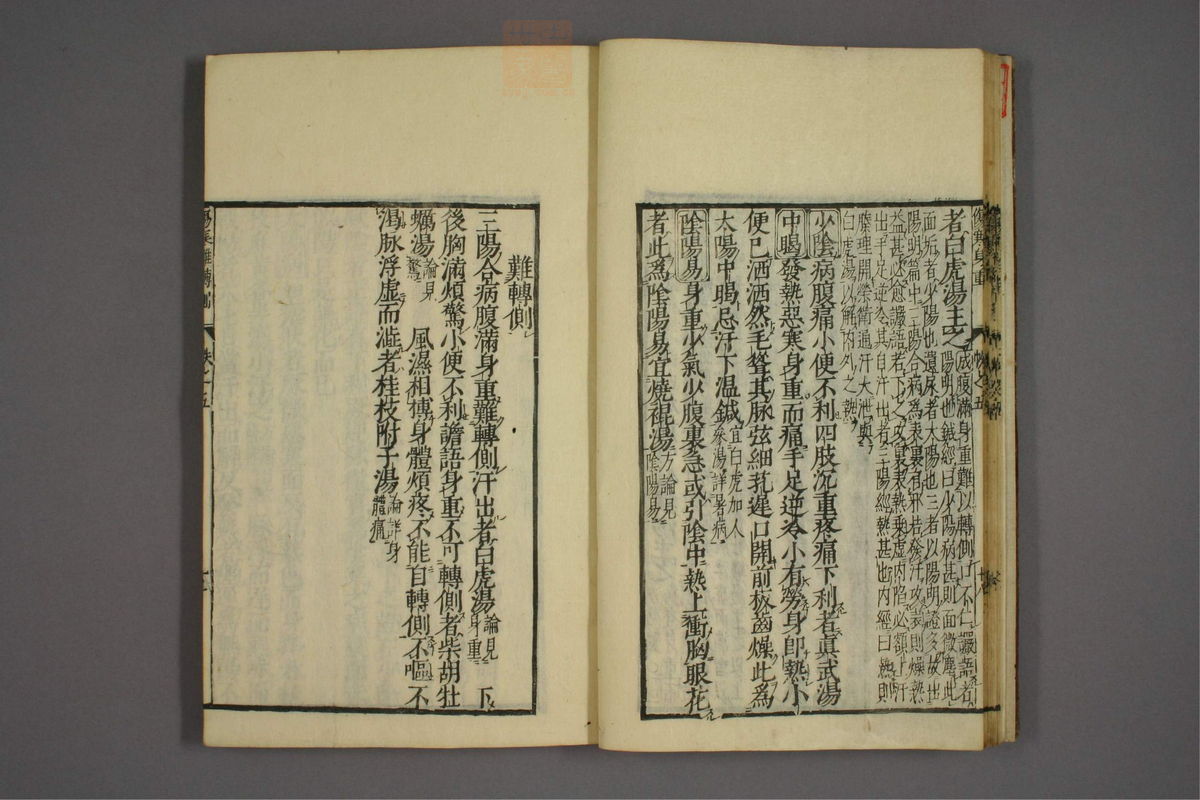 者白虎湯主之
面垢者少陽也遺尿者太陽也三者以陽明證多故出
陽明篇中三陽合病為表裏有邪若發汗攻表則燥熱
益甚必愈讝語若下之攻裏表熱乘虛內陷必額上汗
出手足逆冷其自汗出者三陽經熱甚也內經曰熱則
腠理開榮衛通汗大泄與
白虎湯以解內外之熱
少陰病腹痛小便不利四肢沉重疼痛下利者眞武湯
中暍發熱惡寒身重而痛手足逆冷小有勞身即熱小
便已洒洒然毛聳其脉弦細芤遲口開前板齒燥此為
太陽中暍忌汗下温鍼宜白虎加人
參湯詳暑病
陰陽易身重少氣少腹裏急或引陰中熱上衝胸眼花
者此為陰陽易宜燒裩湯方論見
陰陽易
難轉側
三陽合病腹滿身重難轉側汗出者白虎湯論見
身重
下
後胸滿煩驚小便不利譫語身重不可轉側者柴胡牡
蠣湯論見
驚
風濕相摶身體煩疼不能自轉側不嘔不
渴脉浮虛而澁者桂枝附子湯論詳身
體痛